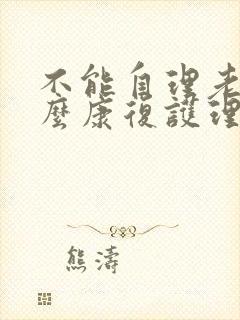 不能自理老
麼康復護理
熊濤